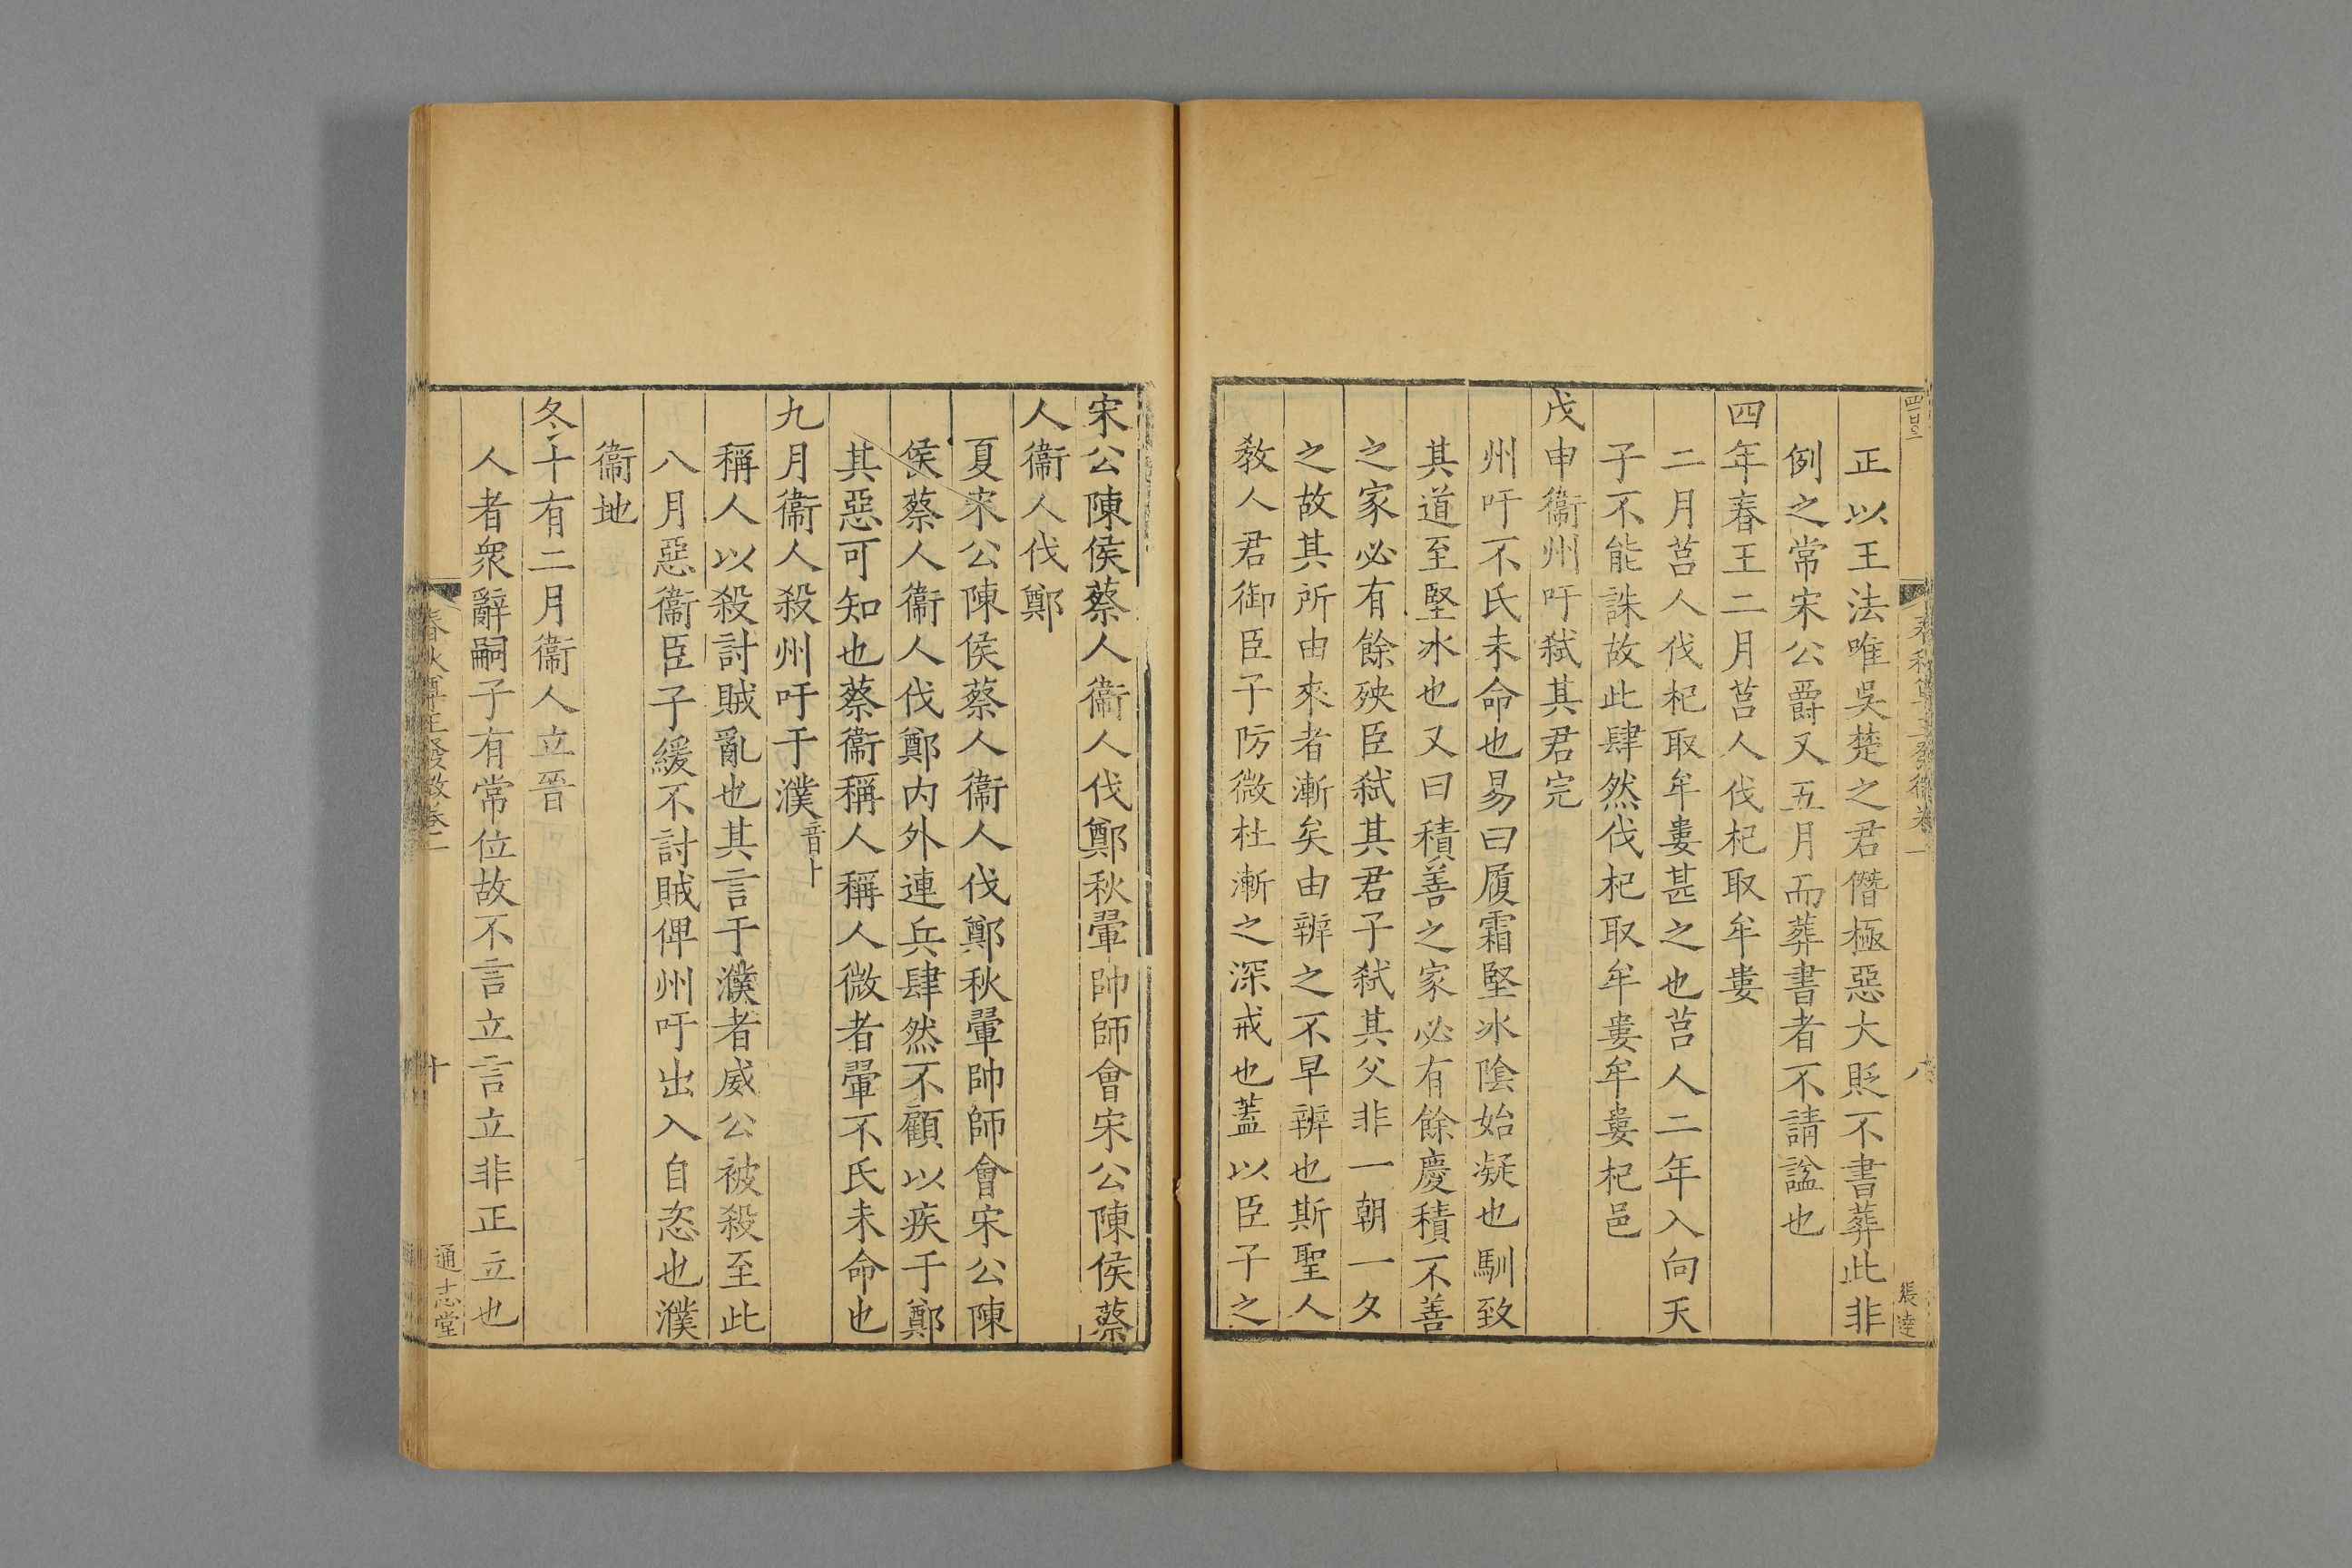 春秋尊王發微卷一
八
張達
正以王法唯吳楚之君僭極惡大貶不書葬此非
例之常宋公爵又五月而葬書者不請諡也
四年春王二月莒人伐杞取牟婁
二月莒人伐杞取牟婁甚之也莒人二年入向天
子不能誅故此肆然伐杞取牟婁牟婁杞邑
戊申衞州吁弒其君完
州吁不氏未命也易曰履霜堅冰陰始凝也馴致
其道至堅冰也又曰積善之家必有餘慶積不善
之家必有餘殃臣弒其君子弒其父非一朝一夕
之故其所由來者漸矣由辨之不早辨也斯聖人
敎人君御臣子防微杜漸之深戒也蓋以臣子之
宋公陳侯蔡人衞人伐鄭秋翬帥師會宋公陳侯蔡
人衞人伐鄭
夏宋公陳侯蔡人衞人伐鄭秋翬帥師會宋公陳
侯蔡人衞人伐鄭內外連兵肆然不顧以疾于鄭
其惡可知也蔡衞稱人稱人微者翬不氏未命也
九月衞人殺州吁于濮音卜
稱人以殺討賊亂也其言于濮者威公被殺至此
八月惡衞臣子緩不討賊俾州吁出入自恣也濮
衞地
冬十有二月衞人立晉
人者衆辭嗣子有常位故不言立言立非正立也
春秋尊王發微卷一
十
通志堂